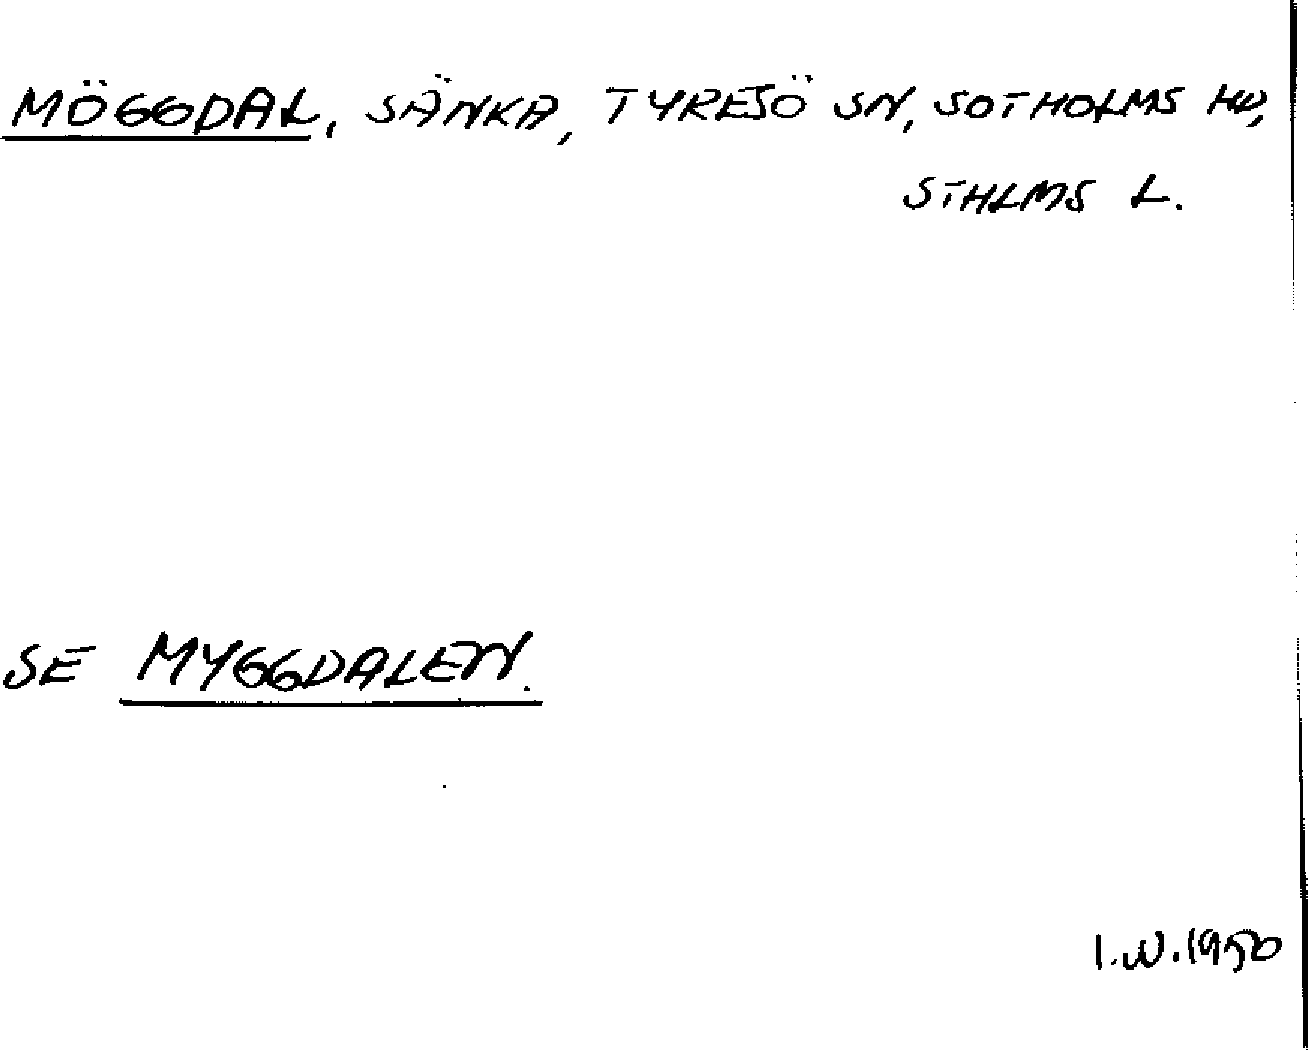 MÖGGDAL, SÄNKA, TYRESÖ SN, SOTHOLMS HD,
STHLMS L.
SE MYGGDALEN.
I.W.1950